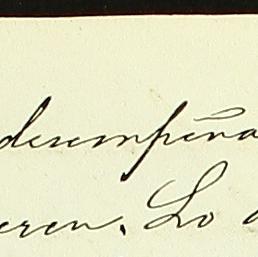 desempeña
eren. Lo